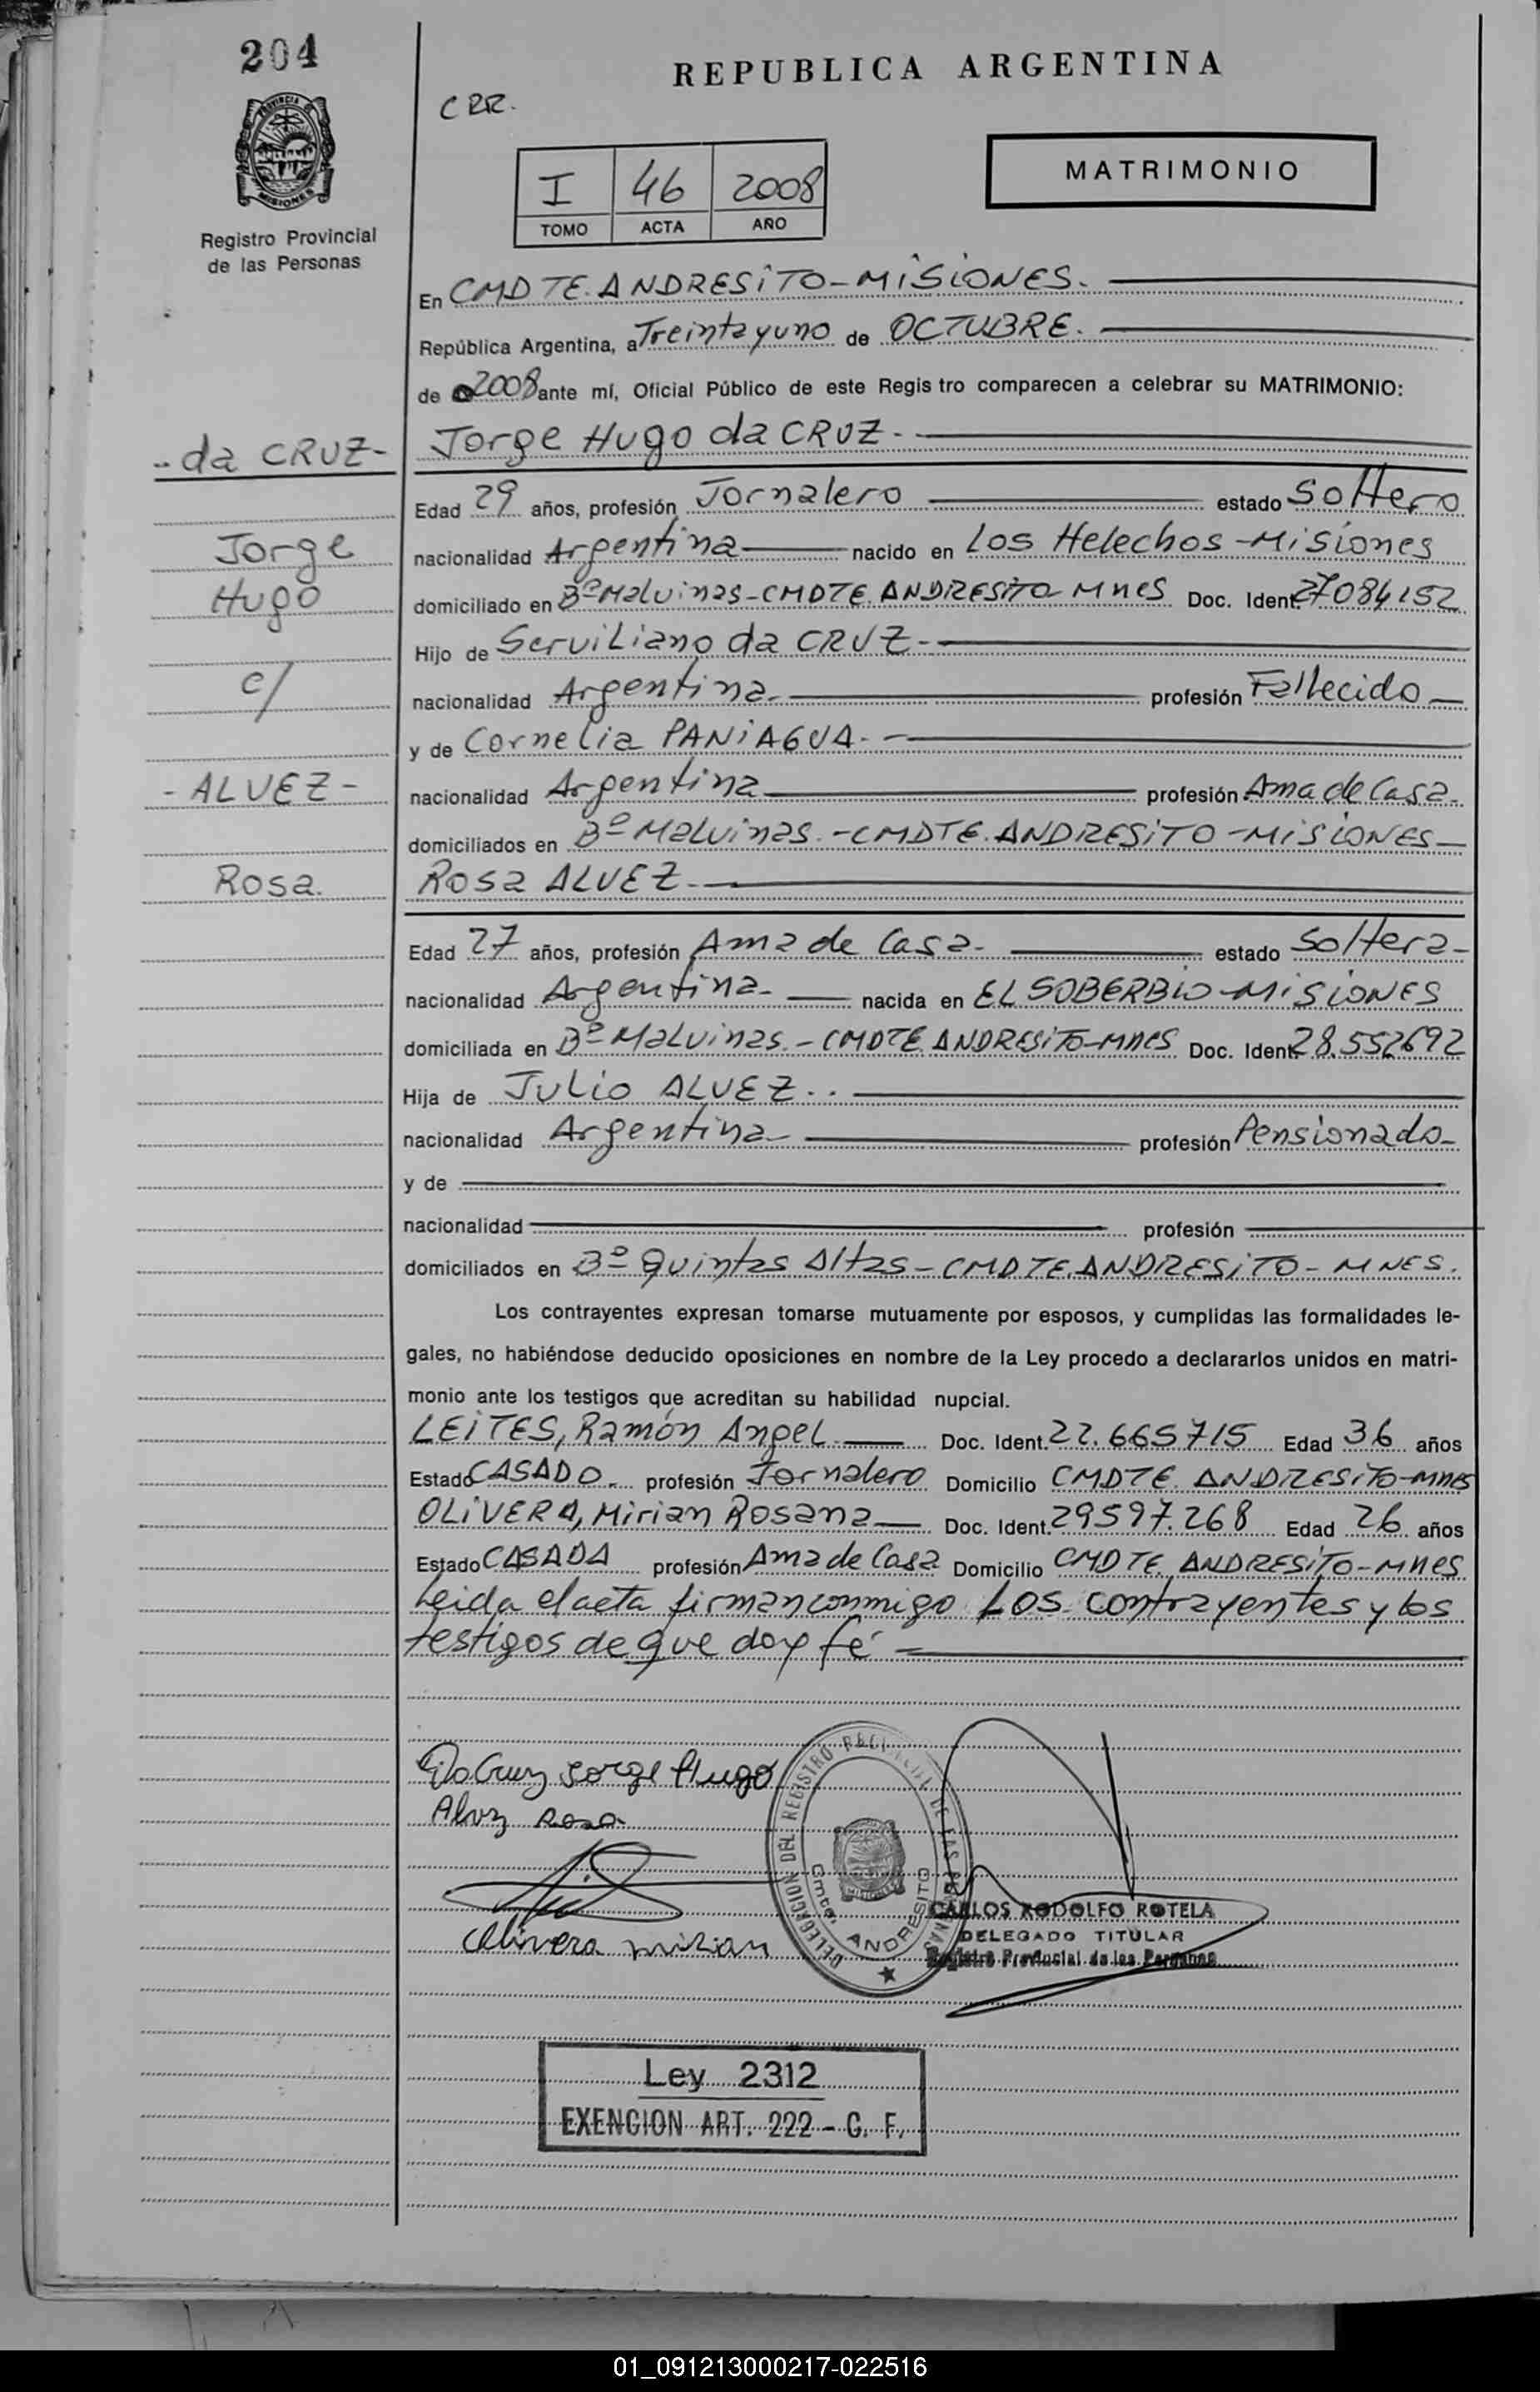 204
REPUBLICA ARGENTINA
CRR.
PROVINCIA DE
MISIONES
Registro Provincial
de las Personas
I 46 2008
TOMO ACTA AÑO
MATRIMONIO
En CMDTE. ANDRESiTO-MiSiONES.
República Argentina, a Treintayuno de OCTUBRE.
de 2008 ante mí, Oficial Público de este Regis tro comparecen a celebrar su MATRIMONIO:
-da CRUZ- Jorge Hugo da CRUZ.
Edad 29 años, profesión Jornalero estado Soltero
Jorge nacionalidad Argentina nacido en Los Helechos-Misiones
Hugo domiciliado en Bº Malvinas-CMDTE. ANDRESITO-Mnes Doc. Ident. 27084152
Hijo de Serviliano da CRUZ.
c/ nacionalidad Argentina. profesión Fallecido
y de Cornelia PANiAGUA.
-ALVEZ- nacionalidad Argentina profesión Ama de Casa.
domiciliados en Bº Malvinas.-CMDTE. ANDRESiTO-MiSiONES
Rosa. Rosa ALVEZ.
Edad 27 años, profesión Ama de Casa. estado Soltera
nacionalidad Argentina nacida en EL SOBERBiO-MiSiONES
domiciliada en Bº Malvinas.-CMDTE ANDRESiTO-Mnes Doc. Ident. 28.552692
Hija de Julio ALVEZ..
nacionalidad Argentina profesión Pensionado
y de
nacionalidad profesión
domiciliados en Bº Quintas Altas-CMDTE. ANDRESiTO-MNES.
Los contrayentes expresan tomarse mutuamente por esposos, y cumplidas las formalidades le-
gales, no habiéndose deducido oposiciones en nombre de la Ley procedo a declararlos unidos en matri-
monio ante los testigos que acreditan su habilidad nupcial.
LEiTES, Ramón Angel Doc. Ident. 22.665715 Edad 36 años
Estado CASADO. profesión Jornalero Domicilio CMDTE. ANDRESiTO-mnes
OLiVERA, Mirian Rosana Doc. Ident. 29597.268 Edad 26 años
Estado CASADA profesión Ama de Casa Domicilio CMDTE. ANDRESiTO-Mnes
Leida el acta firman conmigo Los contrayentes y los
testigos de que doy fé
DaCruz Jorge Hugo
Alvez Rosa
Olivera mirian
DELEGACION DEL REGISTRO PROVINCIAL DE LAS PERSONAS
Cmte. ANDRESITO
CARLOS RODOLFO ROTELA
DELEGADO TITULAR
Registro Provincial de las Personas
Ley 2312
EXENCION ART. 222 - C. F.
01_091213000217-022516